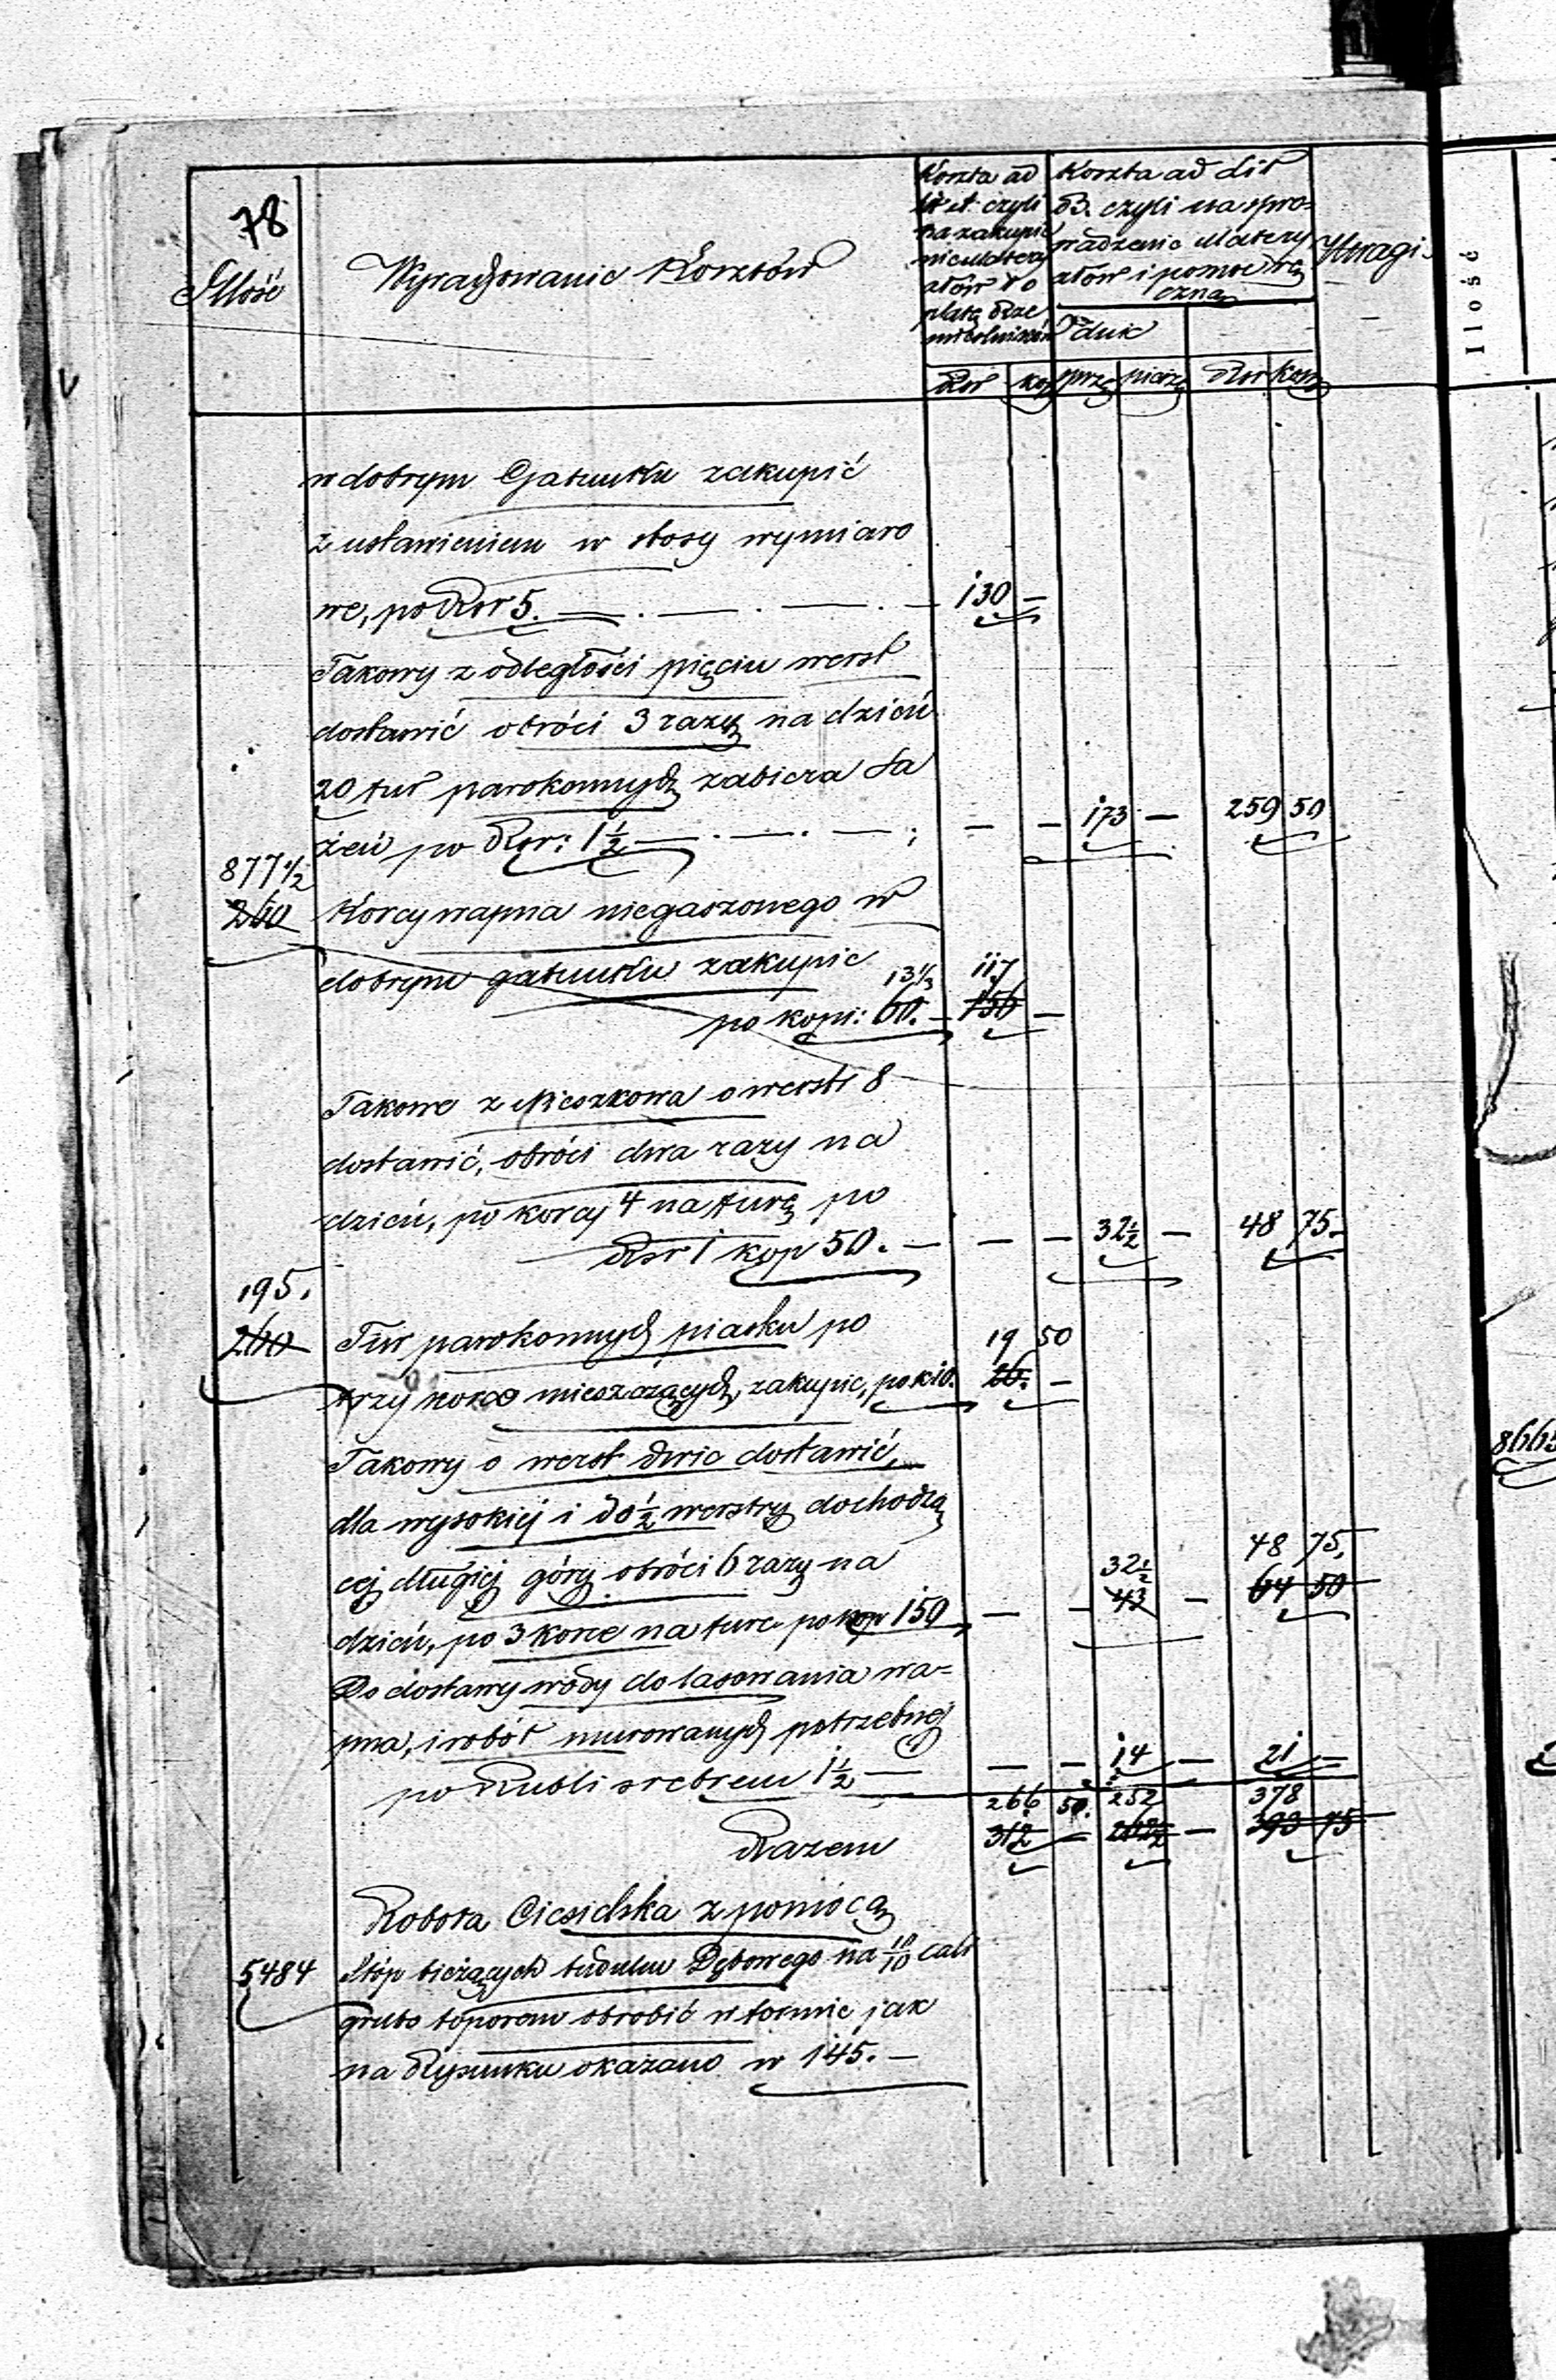 78
Illość
Wyrachowanie Kosztów
Koszta ad
lit A. czyli
na zakupie
nie Matery
ałów i o
płatę Rze
mieślników
Koszta ad Lit
B. czyli na spro=
wadzenie Matery
ałów i pomoc rę
czną
Dnie
Uwagi
Rsr kop prze piesze Rsr kop
Ilość
w dobrym Gatunku zakupić
z ustawieniem w stosy wymiaro
we, po Rsr 5. — . — . — . — 130 —
Takowy z odległości pięciu werst
dostawić obróci 3 razy na dzień
20 fur parokonnych zabiera Są
żeń po Rsr: 1 1/2 — . — . — ; — — 173 — 259 50
877 1/2
260 Korcy wapna niegaszonego w
dobrym gatunku zakupić 13 1/3 117
po kopi: 60. — 156 —
Takowe z Mieszkowa o werst 8
dostawić, obróci dwa razy na
dzień, po korcy 4 na furę po
Rsr 1 kop 50. — — — 32 1/2 — 48 75.
195.
260 Fur parokonnych piasku po 19 50
trzy korce mieszczących, zakupić, po k 10. 26. —
Takowy o werst dwie dostawić,
dla wysokiej i do 1/2 werstry dochodzą
cej długiej góry obróci 6 razy na 32 1/2 48 75.
dzień, po 3 korce na furę po kop 150 — — 43 — 64 50
Do dostawy wody do lasowania wa=
pna, i robót murowanych potrzebnej
po Rubli srebrem 1 1/2 — — — 14 — 21 —
266 50. 252 378
Razem 312 — 262 1/2 — 393 75
Robota Ciesielska z pomocą
5484 Stóp bieżących budulcu Dębowego na 10/10 cali
grubo toporem obrobić w formie jak
na Rysunku okazano w 145. —
8665